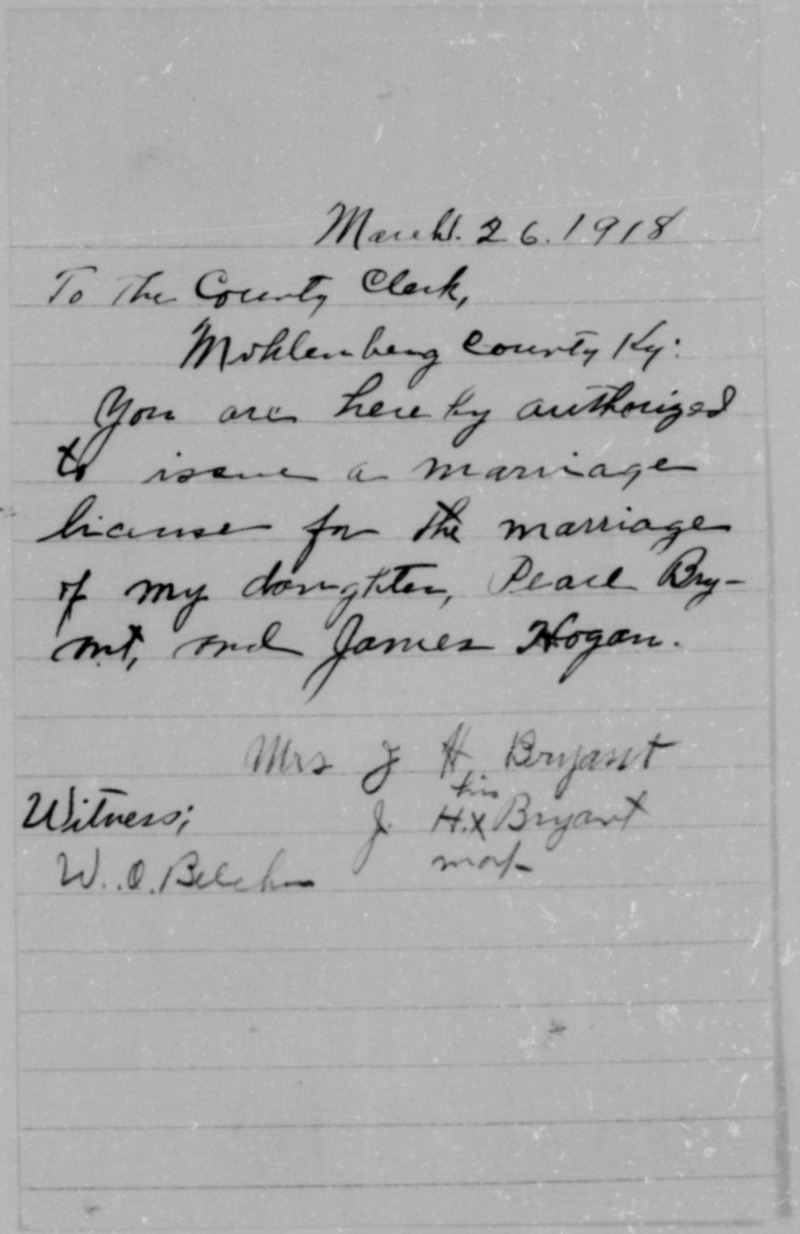 March. 26. 1918
To The County Clerk,
Mohlenberg County Ky:
You are hereby authorized
to issue a marriage
license for the marriage
of my daughter, Pearl Bry-
ant, and James Hogan.
Mrs J H Bryant
his
Witness; J. H. x Bryant
mark
W. O. Belcher